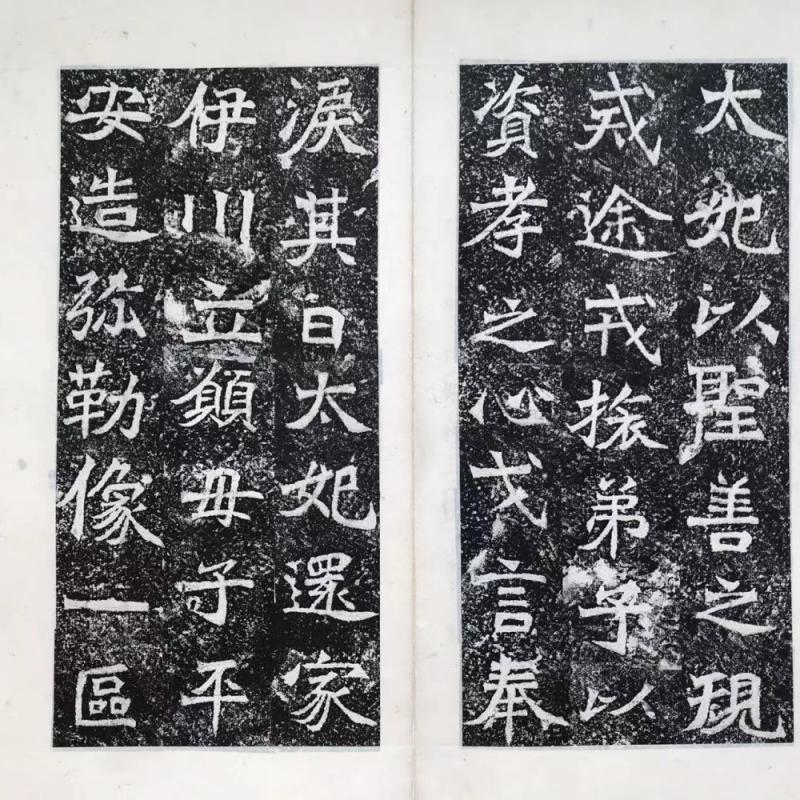 太妃以聖善之規
戒途戎旅弟子以
資孝之心戈言奉
淚其日太妃還家
伊川立願母子平
安造弥勒像一區